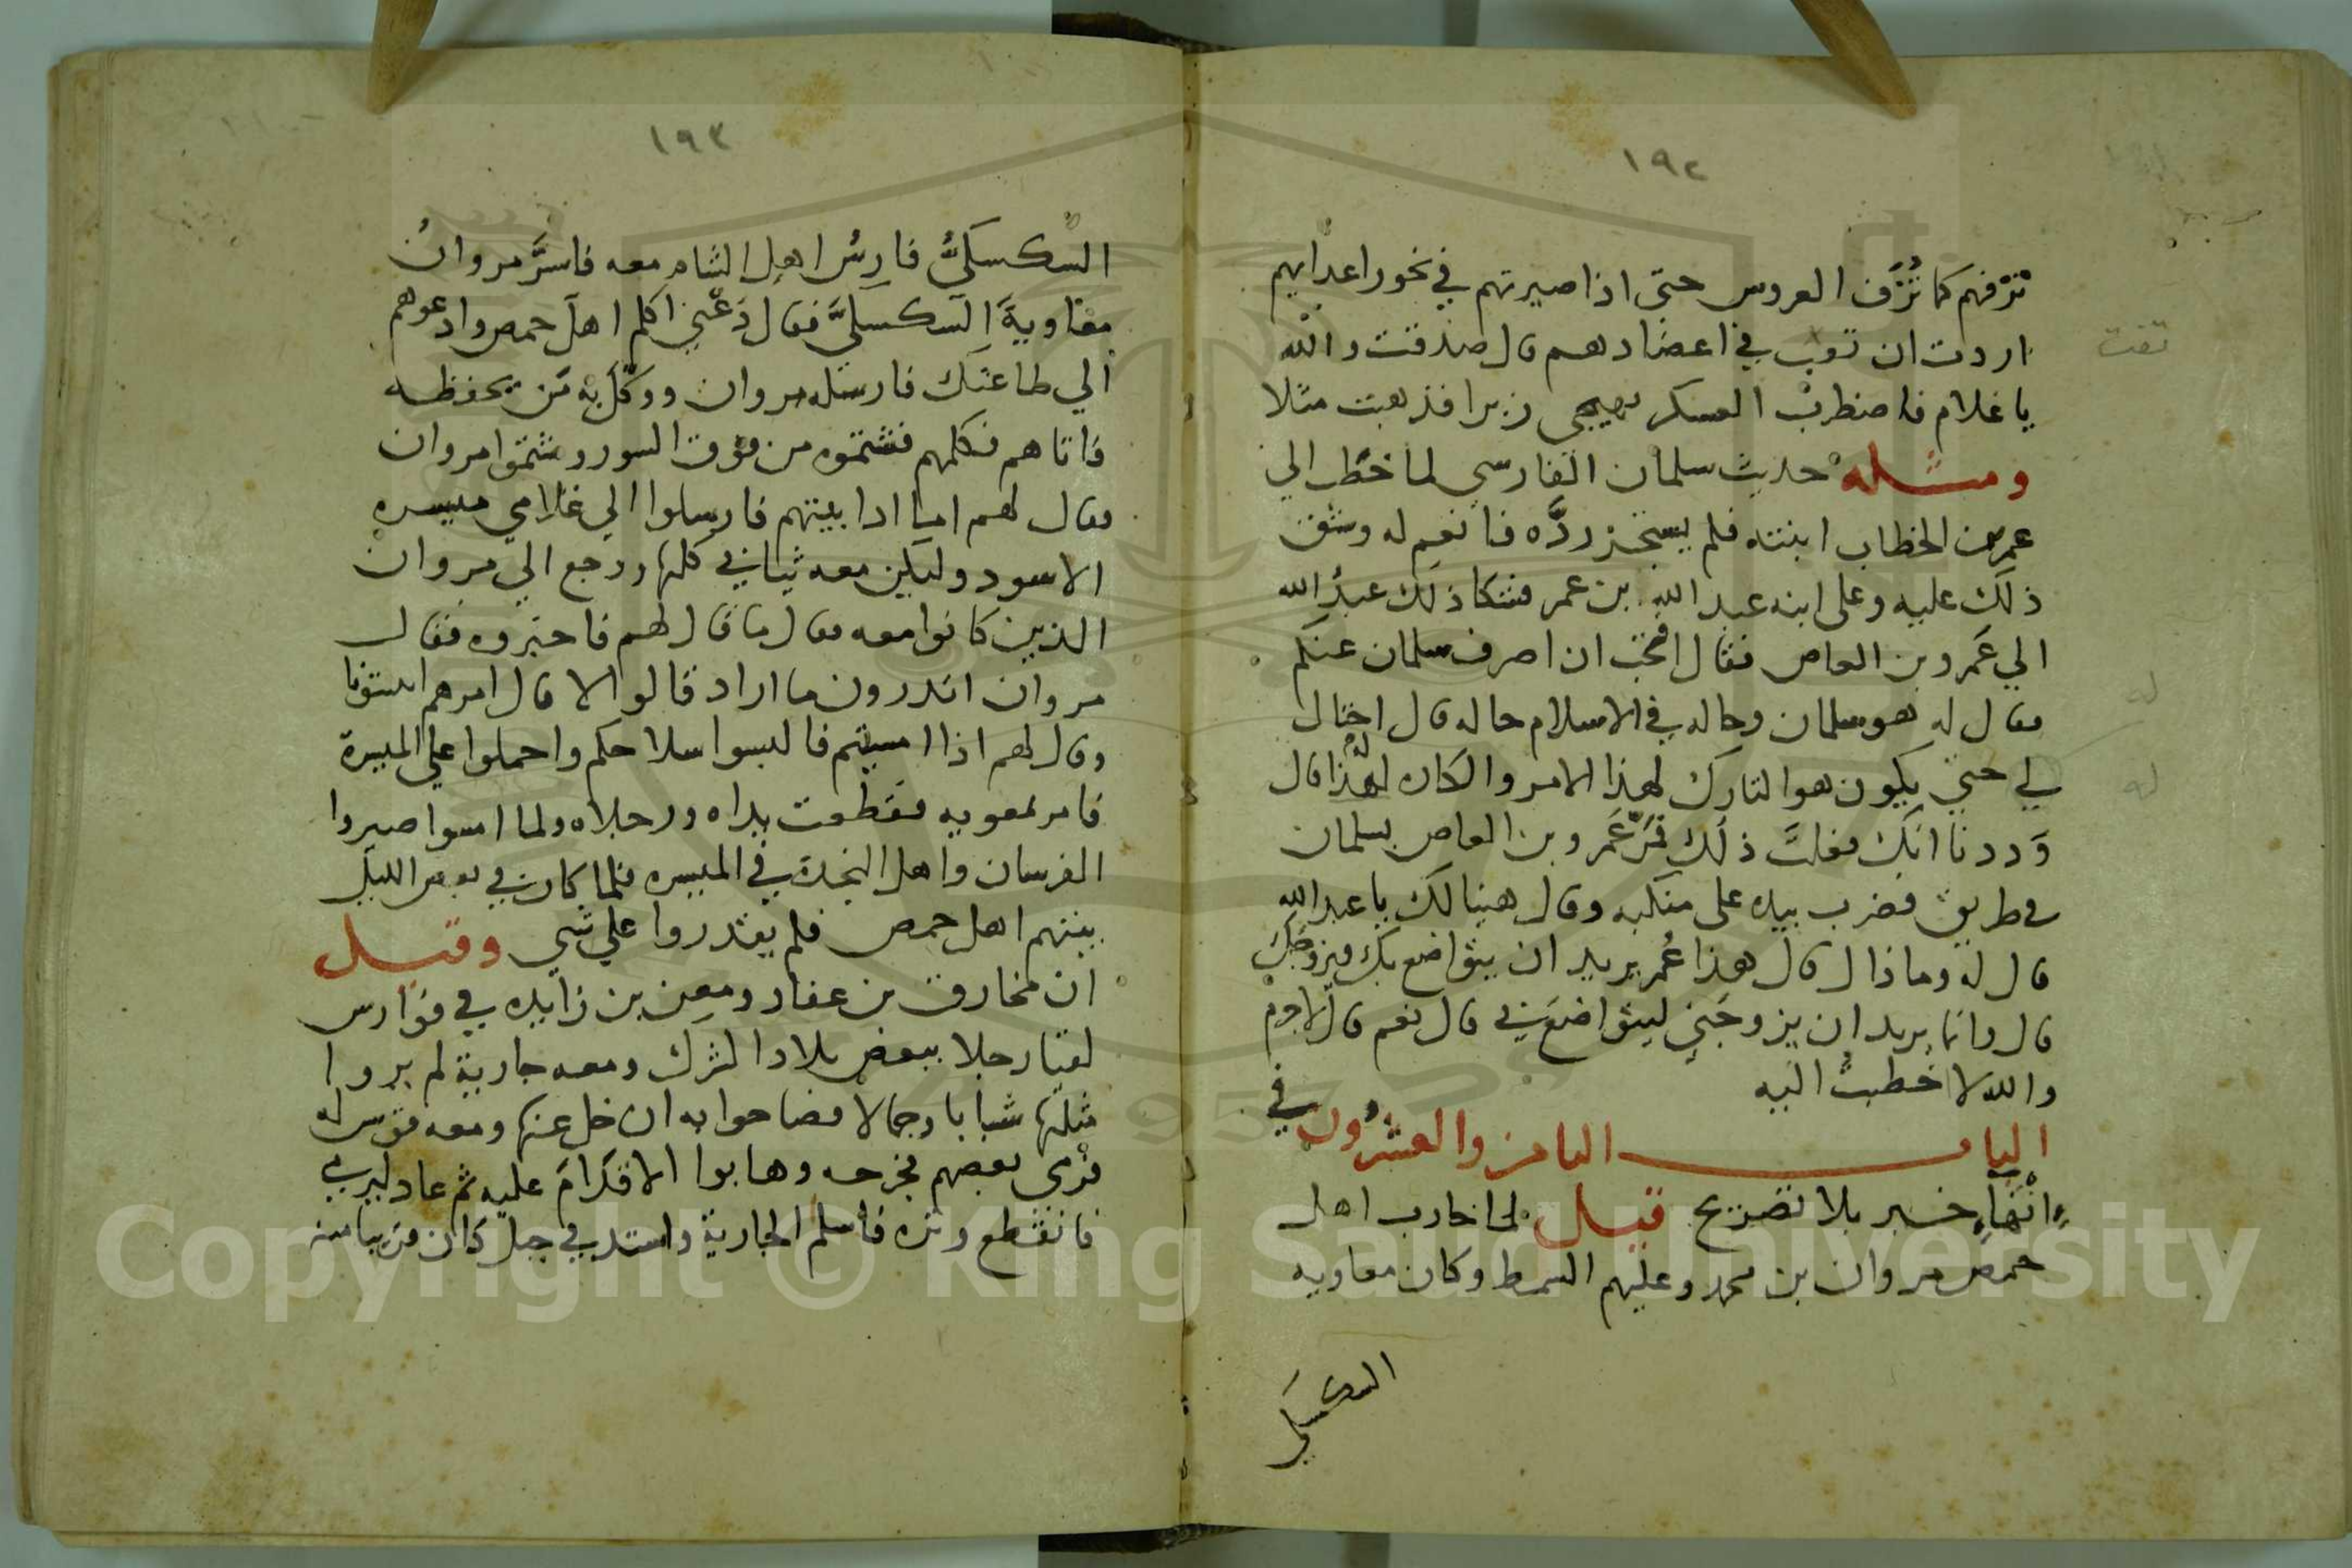 ١٩٢
تزفهم كما تُزَف العروس حتى اذا صيرتهم في نحور اعدايهم
اردت ان في اعضادهم قال صدقت والله
تفت
يا غلام فاضطرب العسكر زبرا فذهبت مثلا
ومثله حديث سلمان الفارسي لما خطب الي
عمر بن الخطاب ابنته فلم يستجز ردَّه فانعم له وشق
ذلك عليه وعلى ابنه عبد الله بن عمر فشكا ذلك عبدُ الله
الي عَمرو بن العاص فقال افتحب ان اصرف سلمان عنكم
فقال له هو سلمان وحاله في الاسلام حاله قال احتال
له
لي حتي يكون هو التارك لهذا الامر والكاره لهذا قال
له
وَددنا انك فعلتَ ذلك فمَرّ عَمرو بن العاص بسلمان
في طريق فضرب بيده على منكبه وقال هنيا لك يا عبد الله
قال له وما ذا ل قال هذا عُمر يريد ان يتواضع بك فيزوجك
قال وانما يريد ان يزوجَني ليتواضعَ بي قال نعم قال لا جرم
والله لا خطبتُ اليه
الباب الثامن والعشرُون في
انْهَآءِ خبر بلا تصريح قيل لما حارب اهل
حمص مروان بن محمد وعليهم السمط وكان معاويه
السكسكي
١٩٣
السكسكيُّ فارسُ اهل الشام معه فاسَرَّ مروانُ
معاويةَ السكسكيَّ فقال دَعْني اكلم اهلَ حمص وادعوهم
الي طاعتك فارسله مروان ووكّل به مَن يحفظه
فاتاهم فكلمهم فشتموه من فوق السور وشتموا مروان
فقال لهم اما اذا بيتهم فارسلوا الي غلامي ميسره
الاسود وليكن معه ثيابي كلها ورجع الي مروان
الذين كانوا معه فقال ما قال لهم فاخبروه فقال
مروان اتدرون ما اراد قالوا لا قال امرهم
وقال لهم اذا امسيتم فالبسوا سلاحكم واحملوا علي الميسرة
فامر بمعويه فقطعت يداه ورجلاه ولما امسوا صيروا
الفرسان واهل النجدة في الميسره فلما كان في بعض الليل
بيتهم اهل حمص فلم يقدروا علي شي وقيل
ان مخارق بن عفار ومعن بن زايده في فوارس
لقيا رجلا ببعض بلاد الترك ومعه جارية لم يروا
مثلها شبابا وجمالا فصاحوا به ان خل عنها ومعه قوس له
فرمي بعضهم فجرحه وهابوا الاقدامَ عليه ثم عاد ليرمي
فانقطع وتره فاسلم الجارية واستد في جبل كان قريبا منه
Copyright © King Saud University